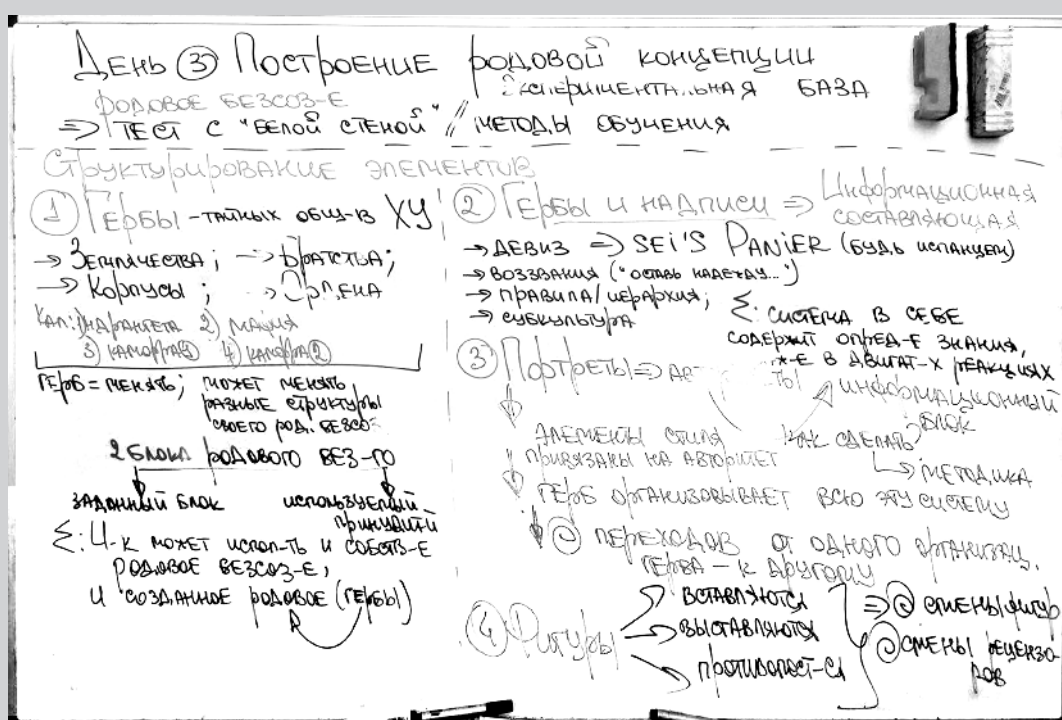 День ③ Построение родовой концепции
Родовое безсоз-е
Экспериментальная база
=> тест с "белой стеной" // методы обучения
Структурирование элементив
① Гербы - тайных общ-в ХУ
-> Землячества; -> Братства;
-> Корпусы; -> Ордена
Кап: 1) Ндрангета 2) мафия
3) каморра① 4) каморра②
Герб = менять; может менять
разные структуры
своего род. безсоз
2 блока родового без-го
заданный блок
используемый
Σ: Ч-к может испол-ть и собств-е
родовое безсоз-е,
и созданное родовое (гербы)
② Гербы и надписи => Информационная
составляющая
-> девиз => SEI'S PANIER (будь испанцем)
-> воззвания ("оставь надежду...")
-> правила/иерархия;
-> субкультура
Σ: система в себе
содержит опред-е знания,
*-е в двигат-х реакциях
③ Портреты =>
информационный
блок
как сделать
-> методика
элементы стиля
привязаны на авторитет
герб организовывает всю эту систему
переходов от одного организац.
герба - к другому
④ Фигуры
вставляются
выставляются
противопост-ся
=> смены фигур
смены рецензо-
ров